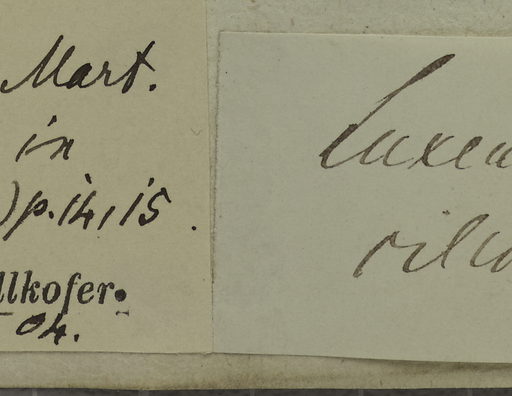 Mart.
in
) p. 14, 15.
llkofer.
04.
Luxem